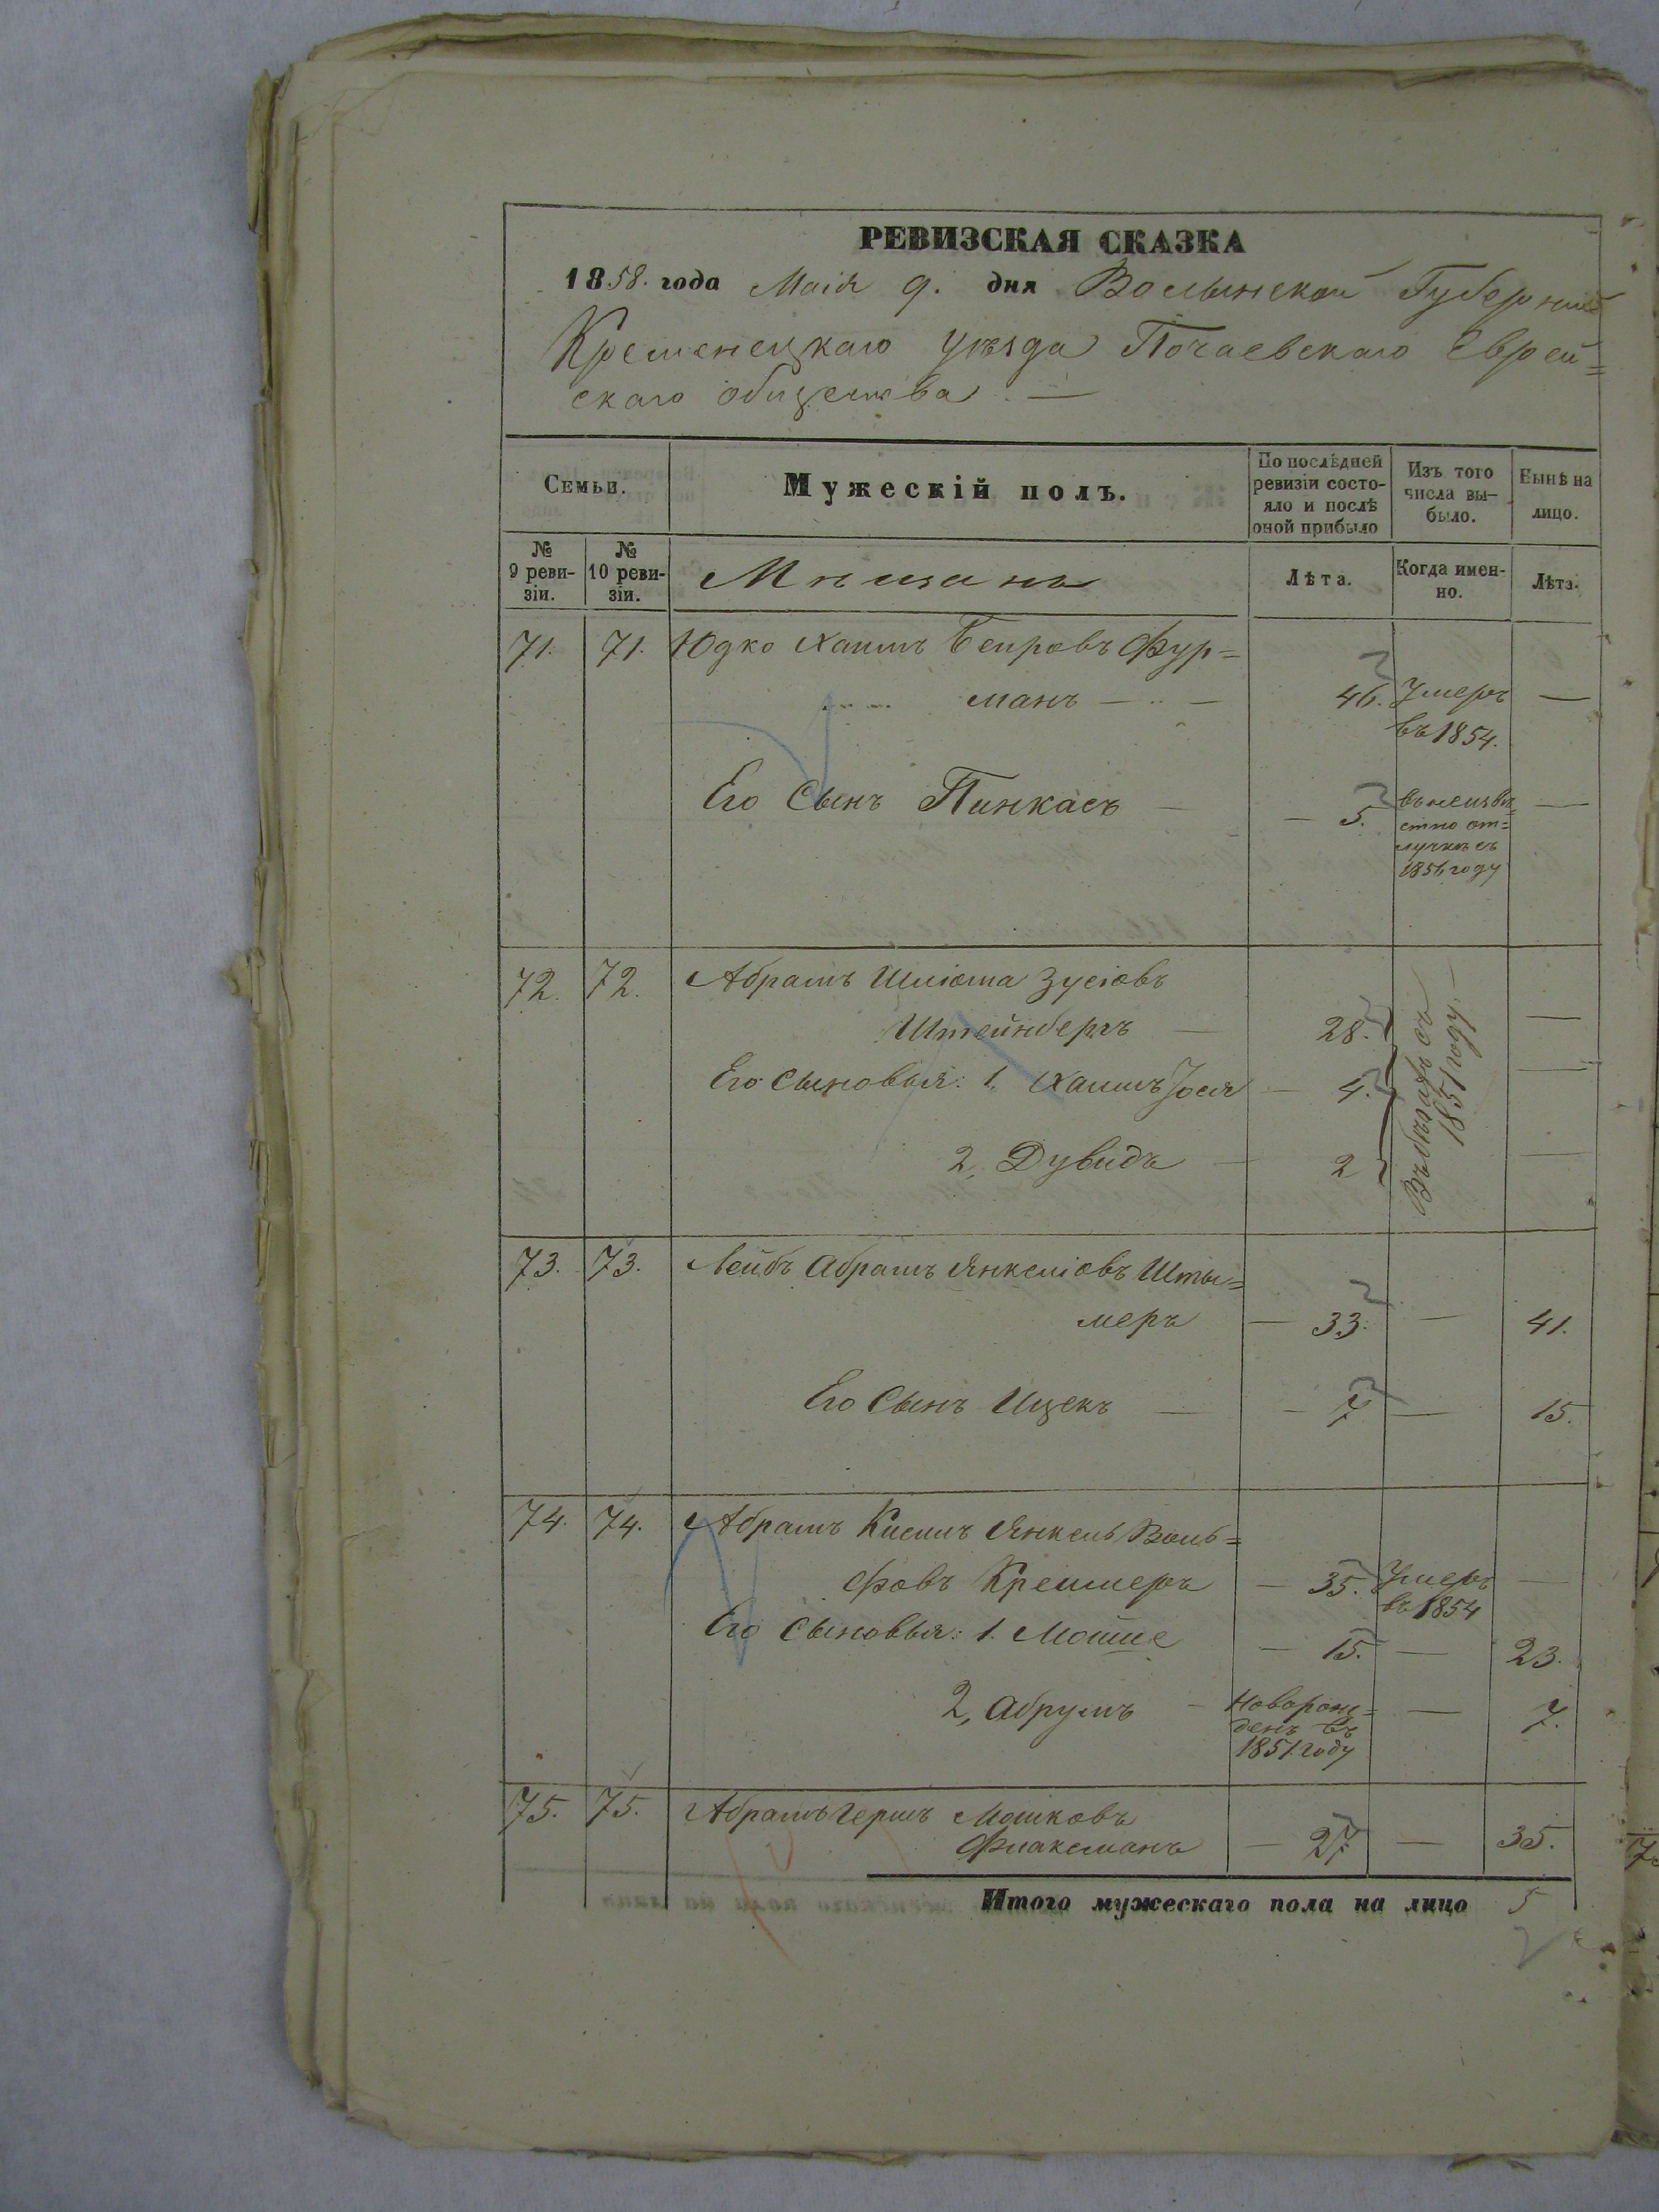 РЕВИЗСКАЯ СКАЗКА
1858. года Маія 9. дня Волынской Губерніи
Кременецкаго уѣзда Почаевскаго Еврей=
скаго общества. —
Семьи.
Мужескій полъ.
По послѣдней
ревизіи состо-
яло и послѣ
оной прибыло
Изъ того
числа вы-
было.
Нынѣ на
лицо.
№
9 реви-
зіи.
№
10 реви-
зіи.
Мѣщане
Лѣта.
Когда имен-
но.
Лѣта.
71. 71. Юдко Хаимъ Беировъ Фур=
манъ — 46. Умеръ —
въ 1854.
Его Сынъ Пинкасъ — 5. въ неизвѣ= —
стно от=
лучкѣ съ
1851 году
72. 72. Абрамъ Шліома Зусіовъ
Штейнбергъ — 28. —
Его сыновья: 1. Хаимъ Іося — 4. —
2, Дувидъ — 2 —
Въ бѣгахъ съ
1851 году. —
73. 73. Лейбъ Абрамъ Янкеліовъ Шты=
меръ — 33. — 41.
Его Сынъ Ицекъ — 7 — 15.
74. 74. Абрамъ Кисиль Янкель Воль=
фовъ Креммеръ — 35. Умеръ —
въ 1854
Его сыновья: 1. Мойше — 15. — 23.
2, Абрумъ — Новорож= — 7.
денъ въ
1851 году
75. 75. Абрамъ Гершъ Мошковъ
Флаксманъ — 27. — 35.
Итого мужескаго пола на лицо 5